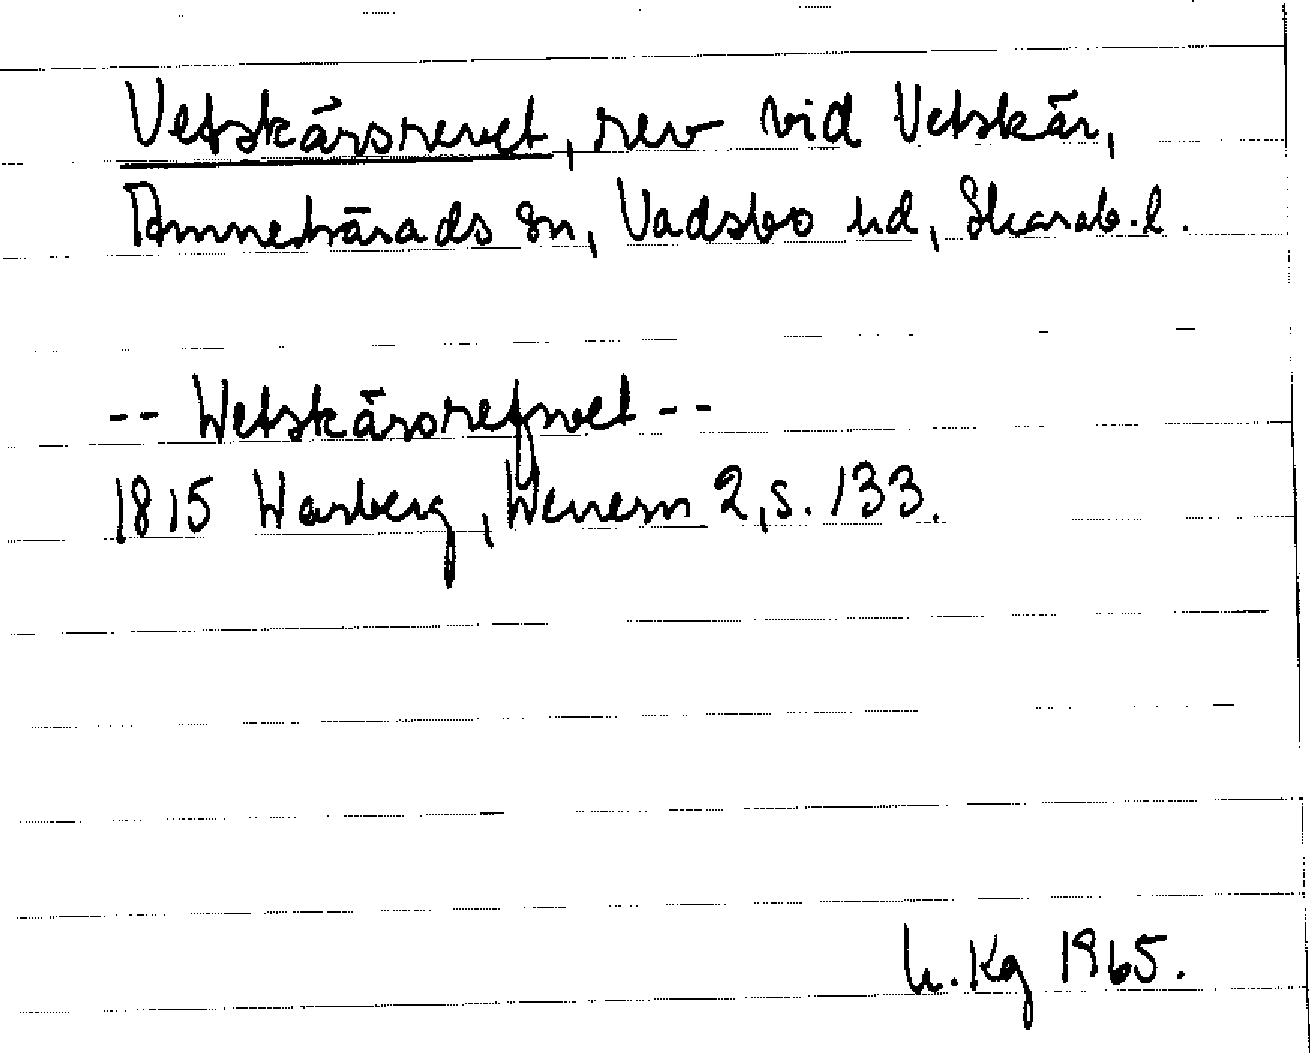 Vetskärsrevet, rev vid Vetskär,
Amnehärads sn, Vadsbo hd, Skarab.l.
-- Wetskärsrefwet --
1815 Warberg, Wenern 2, s. 133.
h. Kg 1965.